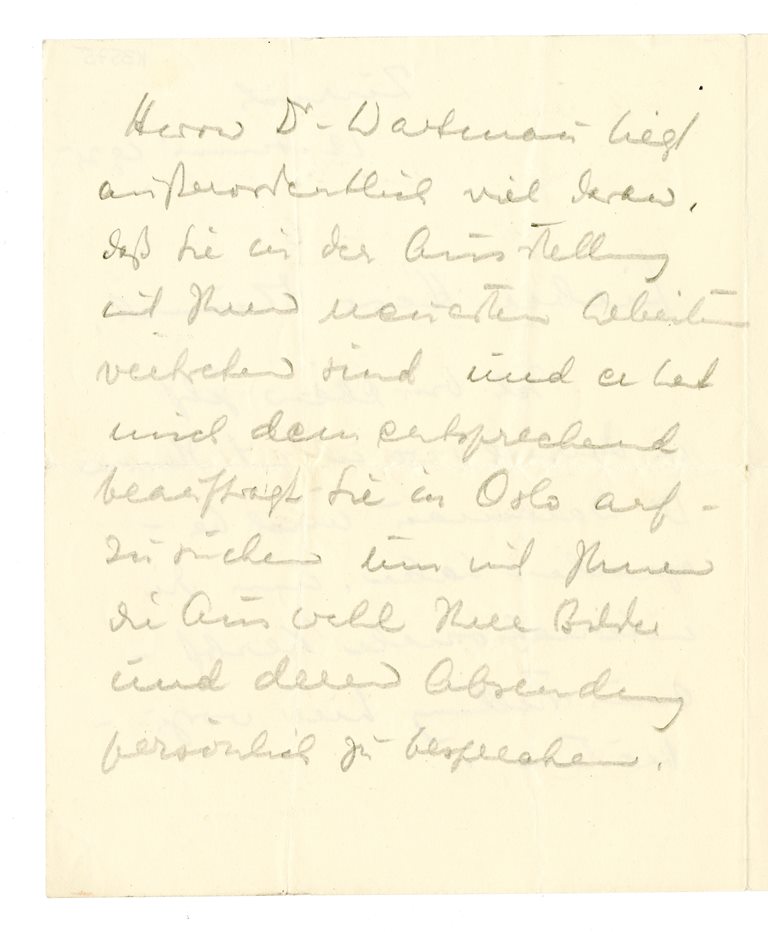 Herrn Dr. Wartmann liegt
außerordentlich viel daran,
daß Sie in der Ausstellung
mit Ihren neuesten Arbeiten
vertreten sind und er hat
mich dementsprechend
beauftragt Sie in Oslo auf-
zusuchen um mit Ihnen
die Auswahl Ihrer Bilder
und deren Absendung
persönlich zu besprechen.